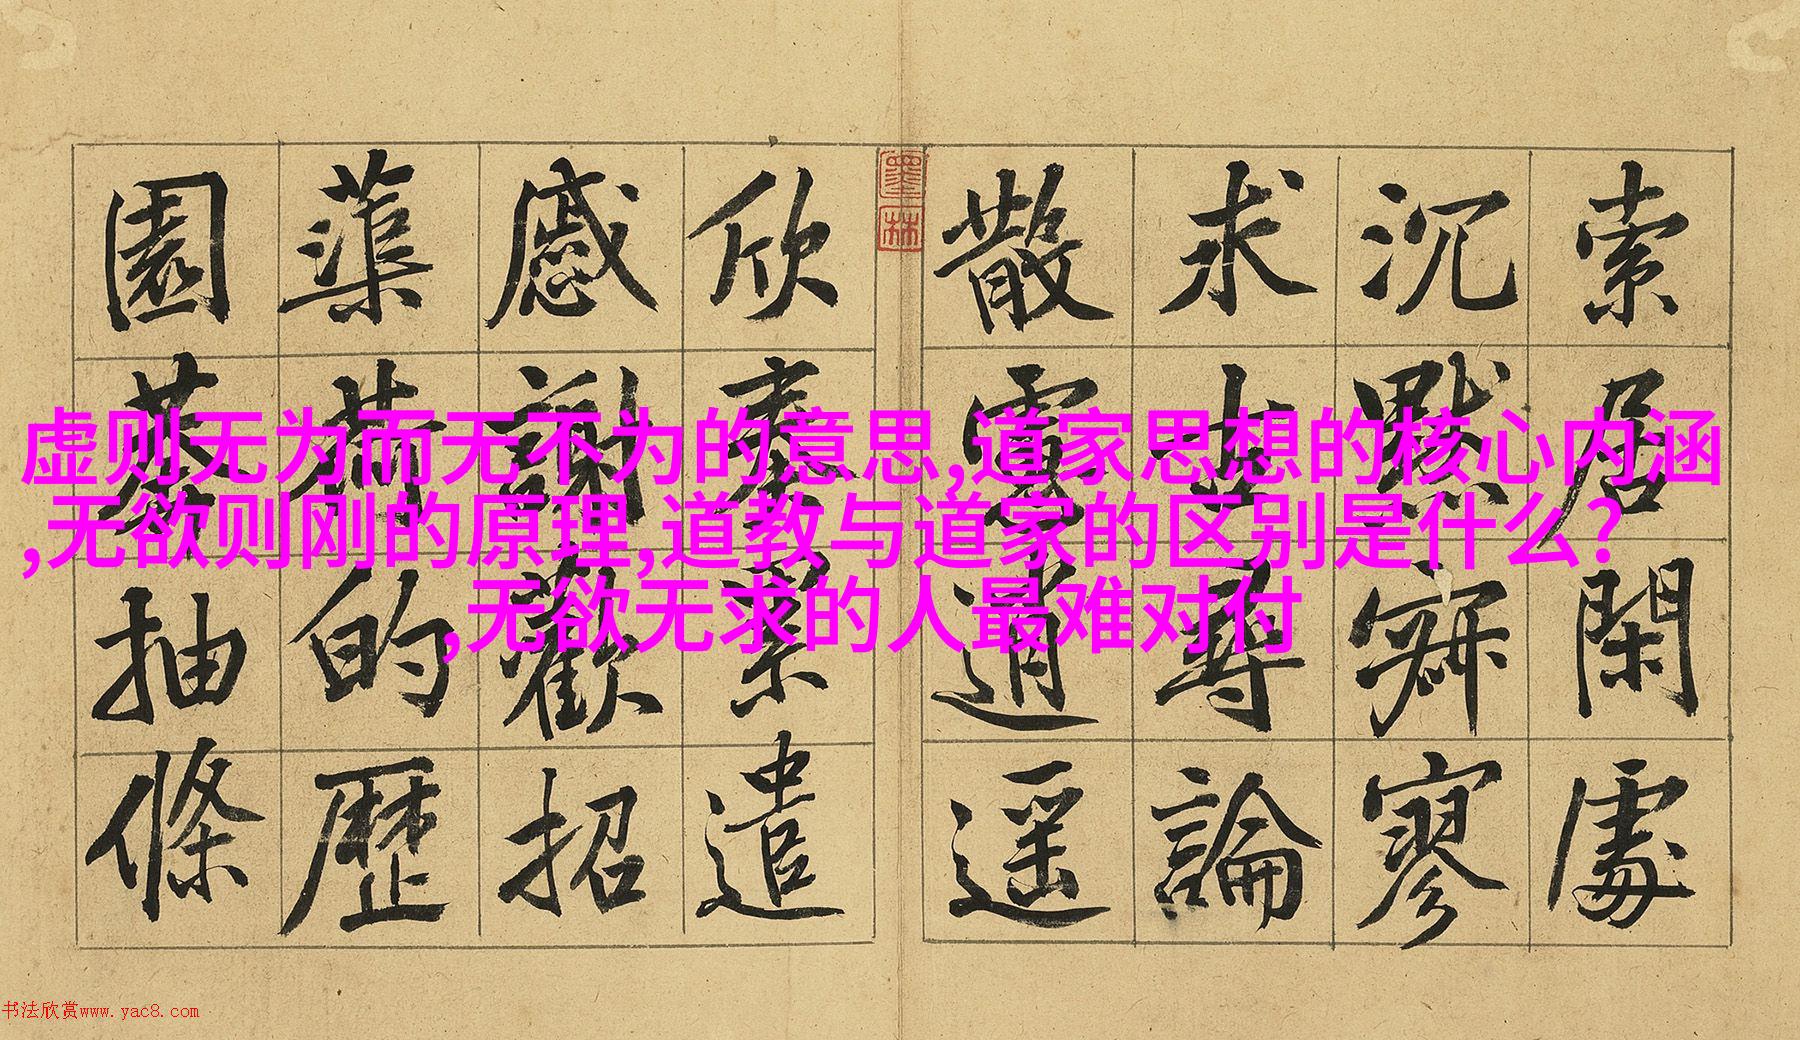 虚则无为而无不为的意思,道家思想的核心内涵
,无欲则刚的原理,道教与道家的区别是什么?
,无欲无求的人最难对付
索居閑處
沉默寂寥
求古尋論
散慮逍遥
欣奏累遣
慼謝歡招
蕖荷的歷
園莽抽條
墨林
书法欣赏www.yac8.com